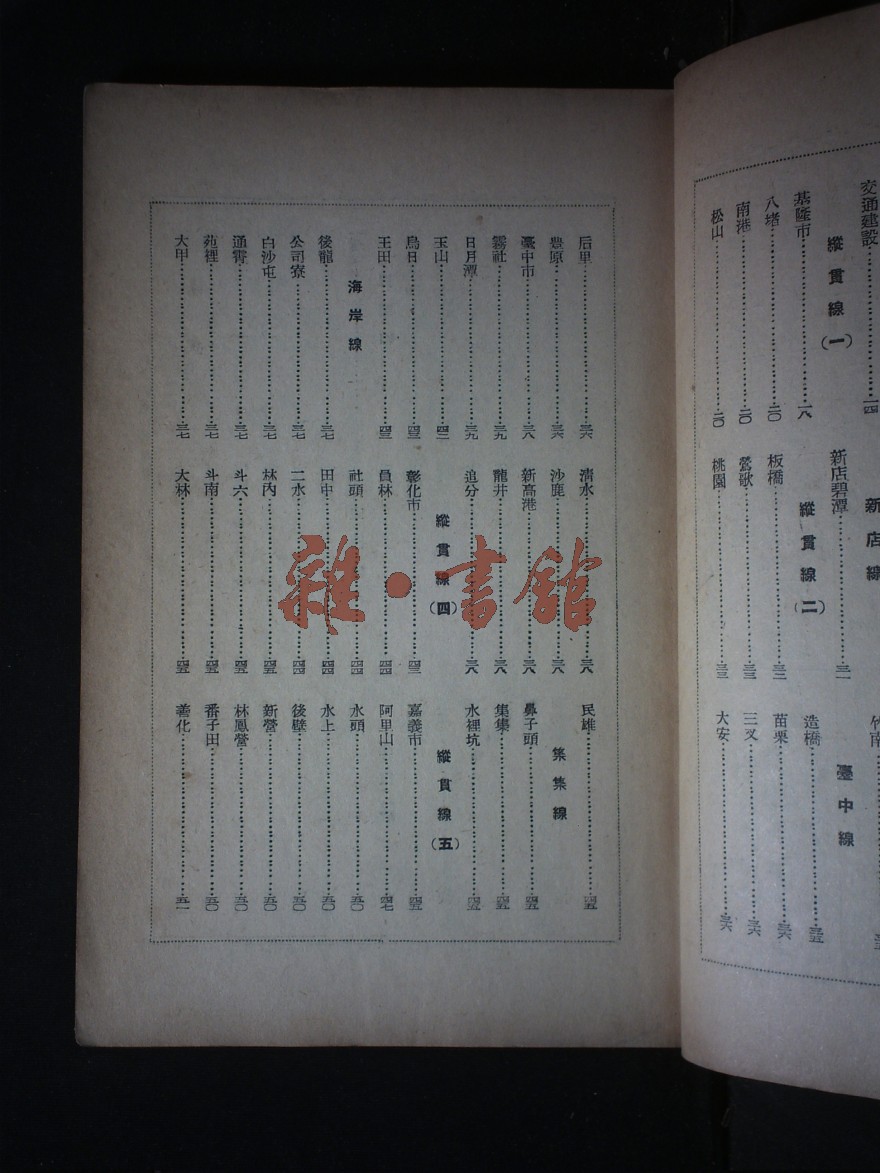 交通建設……一四
縱貫線(一)
基隆市……一八
八堵……二〇
南港……二〇
松山……二〇
新店線
新店碧潭……
縱貫線(二)
板橋……
鶯歌……
桃園……
竹南……
臺中線
造橋……三五
苗栗……三六
三叉……三六
大安……三六
后里……三六
豐原……三六
臺中市……三八
霧社……三九
日月潭……三九
玉山……四二
烏日……四三
王田……四三
海岸線
後龍……三七
公司寮……三七
白沙屯……三七
通霄……三七
苑裡……三七
大甲……三七
清水……三八
沙鹿……三八
新高港……三八
龍井……三八
追分……三八
縱貫線(四)
彰化市……四三
員林……四四
社頭……四四
田中……四四
二水……四四
林內……四五
斗六……四五
斗南……四五
大林……四五
民雄……四五
集集線
鼻子頭……四五
集集……四五
水裡坑……四五
縱貫線(五)
嘉義市……四五
阿里山……四七
水頭……五〇
水上……五〇
後壁……五〇
新營……五〇
林鳳營……五〇
番子田……五〇
善化……五一
雜·書館